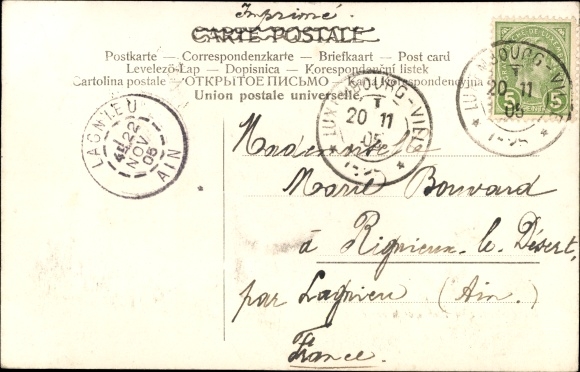 Imprimé.
CARTE POSTALE
Postkarte — Correspondenzkarte — Briefkaart — Post card
Levelező-Lap — Dopisnica — Korespondenční lístek
Cartolina postale — ОТКРЫТОЕ ПИСЬМО — Karta korespondencyjna
Union postale universelle.
LUXEMBOURG-VILLE
20 11
05
LUXEMBOURG-VILLE
20 11
05
5 5
LAGNIEU
22
NOV
05
AIN
Mademoiselle
Marie Bouvard
à Rignieux-le-Désert,
par Lagnieu (Ain.)
France.